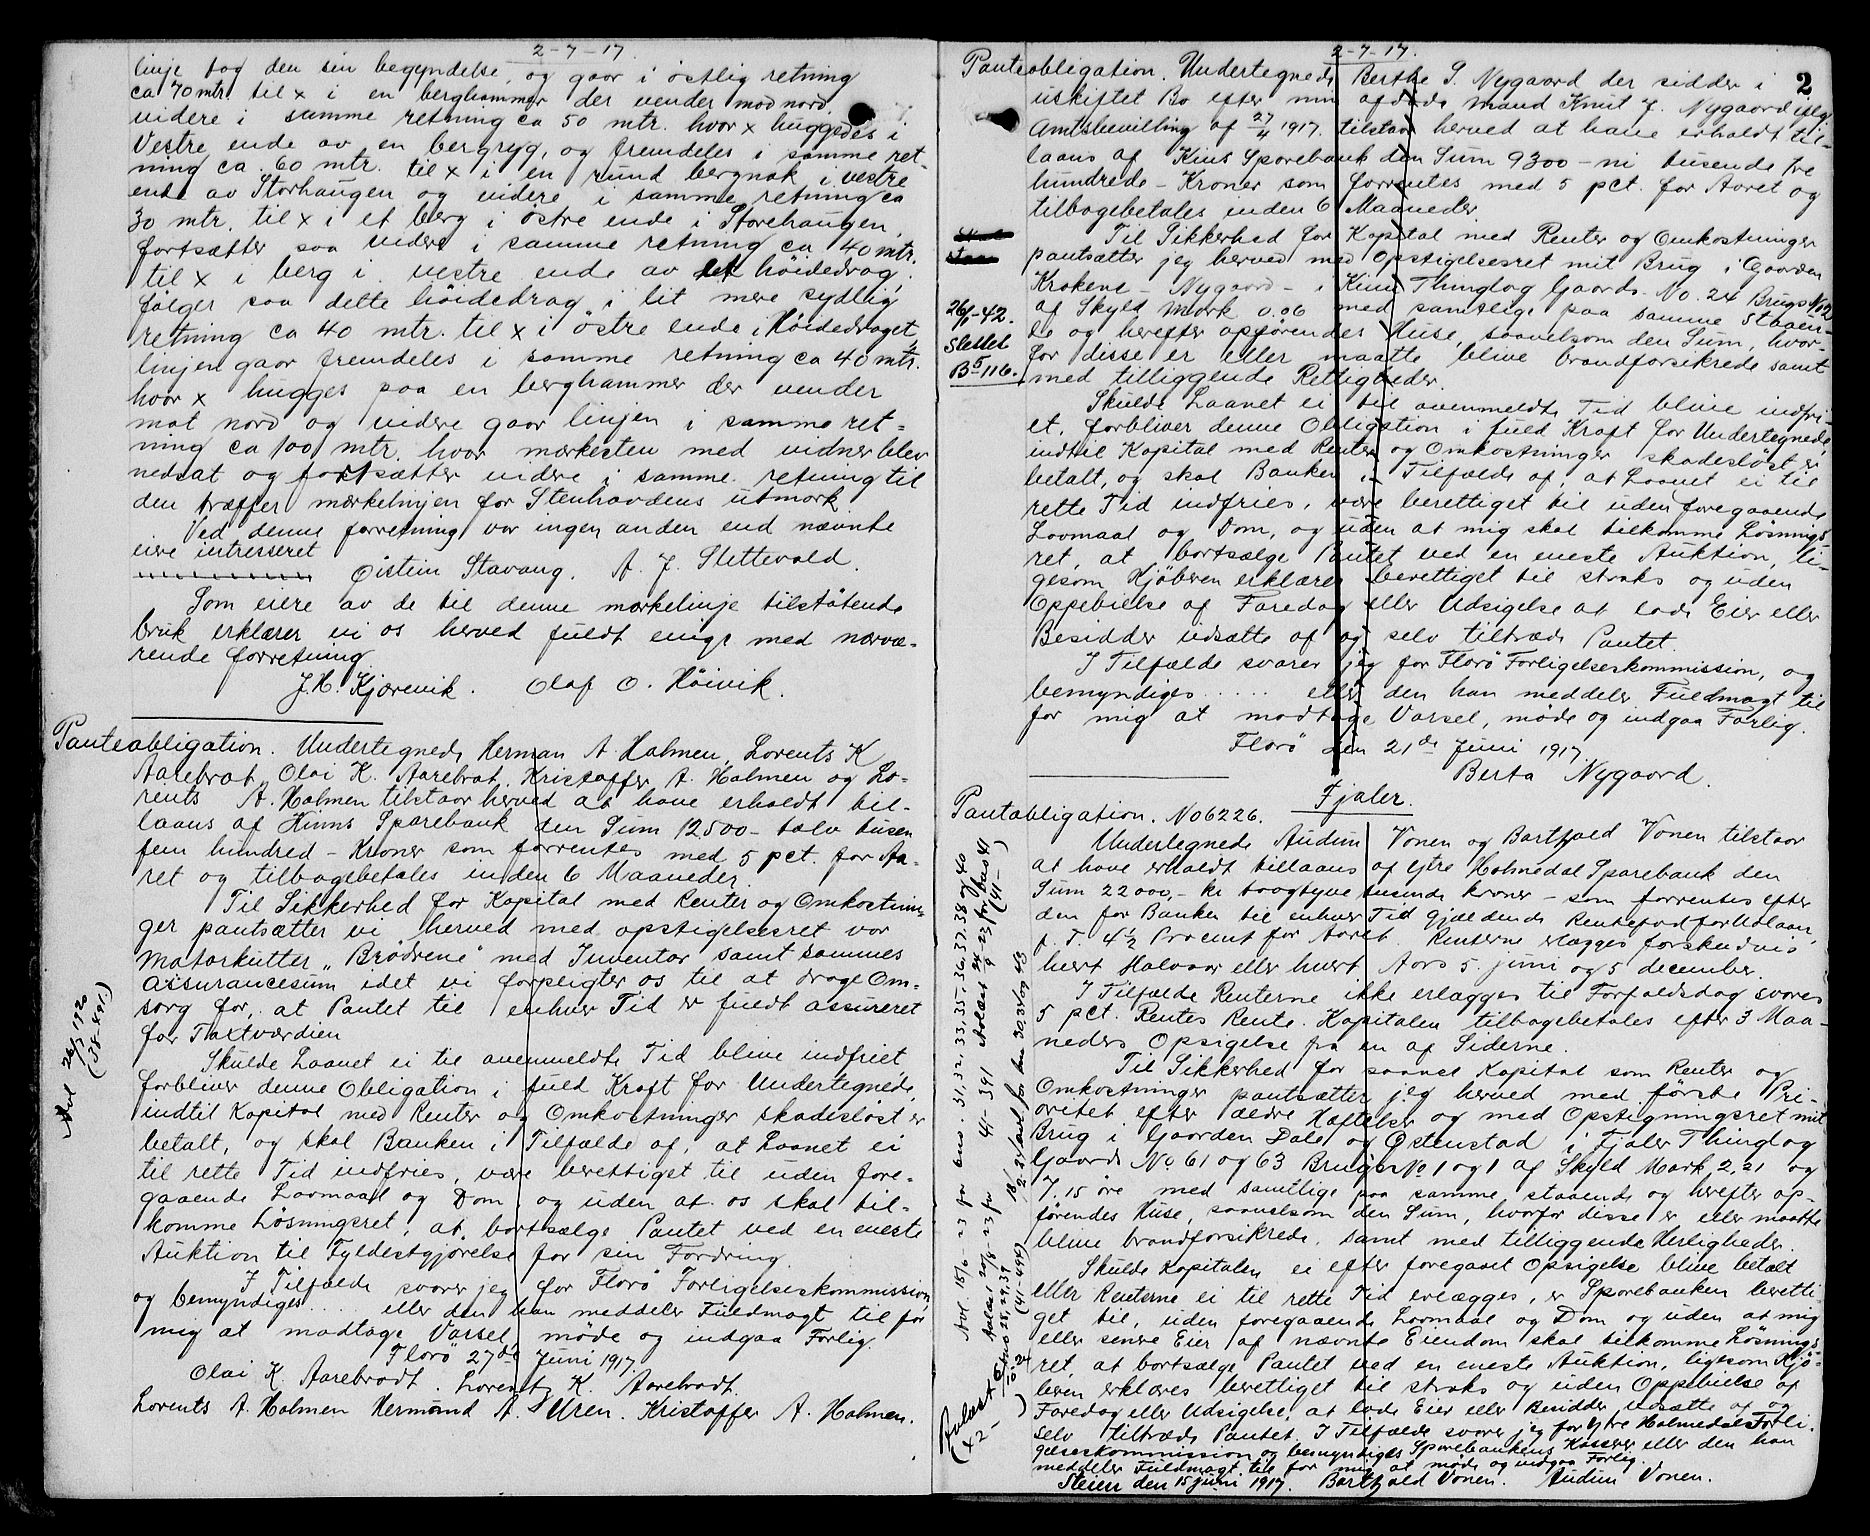 2-7-17.
linje tog den sin begyndelse, og gaar i östlig retning
ca 70 mtr. til x i en berghammer der vender mod nord
videre i samme retning ca 50 mtr. hvor x huggedes i
Vestre ende av en bergryg, og fremdeles i samme ret-
ning ca. 60 mtr. til x i en rund bergnak i vestre
ende av Storhaugen og videre i samme retning ca
30 mtr. til x i et berg i östre ende i Storehaugen,
fortsætter saa videre i samme retning ca 40 mtr.
til x i berg i vestre ende av et höidedrag,
fölger saa dette höidedrag i lit mere sydlig
retning ca 40 mtr. til x i östre ende i Höidedraget,
linjen gaar fremdeles i samme retning ca 40 mtr.
hvor x hugges paa en berghammer der vender
mot nord og videre gaar linjen i samme ret-
ning ca 100 mtr. hvor merkesten med vidner blev
nedsat og fortsætter videre i samme retning til
den træffer merkelinjen for Stenhovdens utmark
Ved denne forretning var ingen anden end nævnte
eiere intresseret
Öistein Stavang. A. J. Slettevold.
Som eiere av de til denne merkelinje tilstötende
bruk erklærer vi os herved fuldt enige med nærvæ-
rende forretning
J. H. Kjærevik. Olaf O. Höivik.
Panteobligation. Undertegnede Herman A Holmen, Lorents K
Aarebrot, Olai K. Aarebrot, Kristoffer A. Holmen og Lo-
rents A. Holmen tilstaar herved at have erholdt til-
laans af Kinns Sparebank den Sum 12500 - tolv tusen
fem hundred - Kroner som forrentes med 5 pct. for Aa-
ret og tilbagebetales inden 6 Maaneder.
Til Sikkerhed for Kapital med Renter og Omkostnin-
ger pantsætter vi herved med opstigelsesret vor
Motorkutter "Brödrene" med Inventar samt sammes
assurancesum idet vi forpligter os til at drage Om-
sorg for, at Pantet til enhver Tid er fuldt assureret
for Taxtværdien
Skulde Laanet ei til ovenmeldte Tid blive indfriet,
forbliver denne Obligation i fuld Kraft for Undertegnede,
indtil Kapital med Renter og Omkostninger skadeslöst er
betalt, og skal Banken i Tilfælde af, at Laanet ei
til rette Tid indfries, være berettiget til uden fore-
gaaende Lovmaal og Dom, og uden at os skal til-
komme Lösningsret, at bortsælge Pantet ved en eneste
Auktion til Fyldestgjörelse for sin Fordring.
I Tilfælde svarer jeg for Florö Forligelseskommission,
og bemyndiges ... eller den han meddeler Fuldmagt til for
mig at modtage Varsel, möde og indgaa Forlig.
Florö 27de Juni 1917
Olai K. Aarebrodt. Lorents K. Aarebrodt.
Lorents A. Holmen Hermund A. Uren. Kristoffer A. Holmen.
Avl 26/3 1920
(38-491.)
2-7-17.
2
Panteobligation. Undertegnede Berthe S. Nygaard der sidder i
uskiftet Bo efter min afdöde Mand Knut J. Nygaard ifölge
Amtsbevilling af 27/4 1917. tilstaar herved at have erholdt til-
laans af Kins Sparebank den Sum 9300 - ni tusende tre
hundrede - Kroner som forrentes med 5 pct. for Aaret og
tilbagebetales inden 6 Maaneder.
Til Sikkerhed for Kapital med Renter og Omkostninger
pantsætter jeg herved med Opstigelsesret mit Brug i Gaarden
Krokene - Nygaard - i Kinn Thinglag Gaards No. 24 Brugs No 2
af Skyld Mark 0.06 med samtlige paa samme Staaen-
de og herefter opförendes Huse, saavelsom den Sum, hvor-
for disse er eller maatte blive brandforsikrede samt
med tilliggende Rettigheder.
Skulde Laanet ei til ovenmeldte Tid blive indfri-
et, forbliver denne Obligation i fuld Kraft for Undertegnede,
indtil Kapital med Renter og Omkostninger skadeslöst er
betalt, og skal Banken i Tilfælde af, at Laanet ei til
rette Tid indfries, være berettiget til uden foregaaende
Lovmaal og Dom, og uden at mig skal tilkomme Lösnings-
ret, at bortsælge Pantet ved en eneste Auktion, li-
gesom Kjöberen erklæres berettiget til straks og uden
Oppebielse af Faredag eller Udsigelse at lade Eier eller
Besidder udsætte af og selv tiltræde Pantet.
I Tilfælde svarer jeg for Florö Forligelseskommission, og
bemyndiges ..... eller den han meddeler Fuldmagt til
for mig at modtage Varsel, möde og indgaa Forlig.
Florö den 21de Juni 1917
Berta Nygaard.
26/1-42.
Slettet
B5 116.
Fjaler.
Pantobligation. No 6226.
Undertegnede Audun Vonen og Bartfjald Vonen tilstaar
at have erholdt tillaans af Ytre Holmedal Sparebank den
Sum 22000,- kr toogtyve tusinde kroner - som forrentes efter
den for Banken til enhver Tid gjældende Rentefod for Udlaan,
p. T. 4½ Procent for Aaret. Renterne erlægges forskudvis
hvert Halvaar eller hvert Aars 5. juni og 5 december.
I Tilfælde Renterne ikke erlægges til Forfaldsdag svares
5 pct. Rentes Rente. Kapitalen tilbagebetales efter 3 Maa-
neders Opsigelse fra en af Siderne.
Til Sikkerhed for saavel Kapital som Renter og
Omkostninger pantsætter jeg herved med förste Pri-
oritet efter ældre Hæftelser og med Opstigningsret mit
Brug i Gaarden Dale og Östenstad i Fjaler Thinglag
Gaards No 61 og 63 Brugs No 1 og 1 af Skyld Mark 2,21 og
7.15 öre med samtlige paa samme staaende og herefter op-
förendes Huse, saavelsom den Sum, hvorfor disse er eller maatte
blive brandforsikrede, samt med tilliggende Herligheder.
Skulde Kapitalen ei efter foregaaet Opsigelse blive betalt
eller Renterne ei til rette Tid erlægges, er Sparebanken beretti-
get til, uden foregaaende Lovmaal og Dom og uden at mig
eller senere Eier af nævnte Eiendom skal tilkomme Lösnings-
ret, at bortsælge Pantet ved en eneste Auktion, ligesom Kjö-
beren erklæres berettiget til straks og uden Oppebielse af
Faredag eller Udsigelse, at lade Eier eller Besidder udsætte af og
selv tiltræde Pantet. I Tilfælde svarer jeg for Ytre Holmedals Forli-
gelseskommission og bemyndiges Sparebankens Kasserer eller den han
meddeler Fuldmagt til for mig at möde og indgaa Forlig.
Steien den 15 juni 1917. Bartfjald Vonen. Audun Vonen.